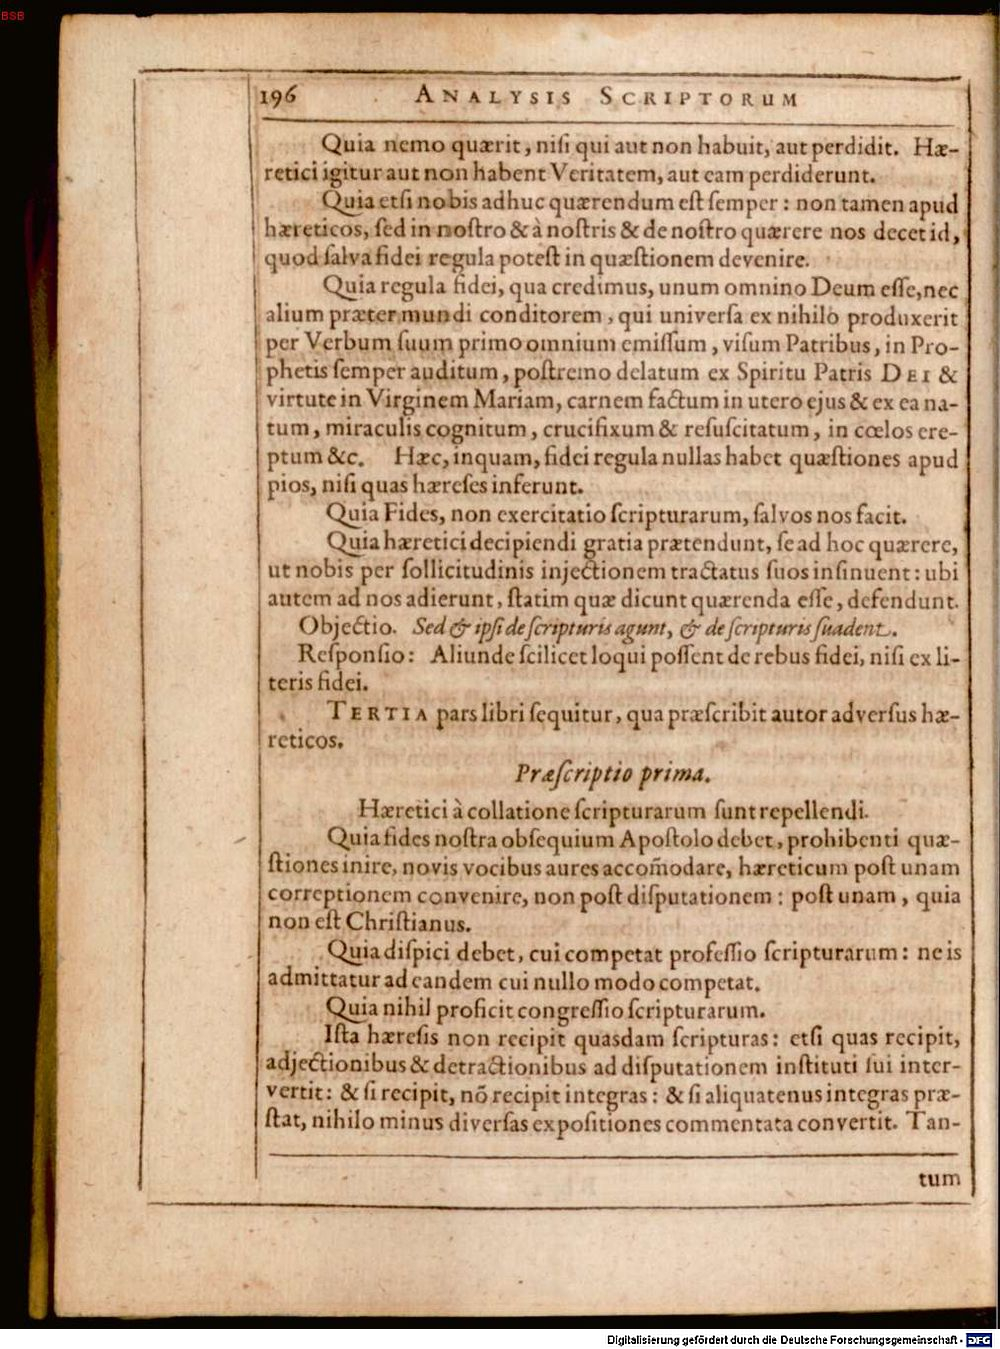 BSB
196 ANALYSIS SCRIPTORUM
Quia nemo quærit, niſi qui aut non habuit, aut perdidit. Hæ-
retici igitur aut non habent Veritatem, aut eam perdiderunt.
Quia etſi nobis adhuc quærendum eſt ſemper: non tamen apud
hæreticos, ſed in noſtro & à noſtris & de noſtro quærere nos decet id,
quod ſalva fidei regula poteſt in quæſtionem devenire.
Quia regula fidei, qua credimus, unum omnino Deum eſſe, nec
alium præter mundi conditorem, qui univerſa ex nihilo produxerit
per Verbum ſuum primo omnium emiſſum, viſum Patribus, in Pro-
phetis ſemper auditum, poſtremo delatum ex Spiritu Patris DEI &
virtute in Virginem Mariam, carnem factum in utero ejus & ex ea na-
tum, miraculis cognitum, crucifixum & reſuſcitatum, in cœlos ere-
ptum &c. Hæc, inquam, fidei regula nullas habet quæſtiones apud
pios, niſi quas hæreſes inferunt.
Quia Fides, non exercitatio ſcripturarum, ſalvos nos facit.
Quia hæretici decipiendi gratia prætendunt, ſe ad hoc quærere,
ut nobis per ſollicitudinis injectionem tractatus ſuos inſinuent: ubi
autem ad nos adierunt, ſtatim quæ dicunt quærenda eſſe, defendunt.
Objectio. Sed & ipſi de ſcripturis agunt, & de ſcripturis ſuadent.
Reſponſio: Aliunde ſcilicet loqui poſſent de rebus fidei, niſi ex li-
teris fidei.
TERTIA pars libri ſequitur, qua præſcribit autor adverſus hæ-
reticos.
Præſcriptio prima.
Hæretici à collatione ſcripturarum ſunt repellendi.
Quia fides noſtra obſequium Apoſtolo debet, prohibenti quæ-
ſtiones inire, novis vocibus aures accom̃odare, hæreticum poſt unam
correptionem convenire, non poſt diſputationem: poſt unam, quia
non eſt Chriſtianus.
Quia diſpici debet, cui competat profeſſio ſcripturarum: ne is
admittatur ad eandem cui nullo modo competat.
Quia nihil proficit congreſſio ſcripturarum.
Iſta hæreſis non recipit quasdam ſcripturas: etſi quas recipit,
adjectionibus & detractionibus ad diſputationem inſtituti ſui inter-
vertit: & ſi recipit, nõ recipit integras: & ſi aliquatenus integras præ-
ſtat, nihilo minus diverſas expoſitiones commentata convertit. Tan-
tum
Digitalisierung gefördert durch die Deutsche Forschungsgemeinschaft - DFG